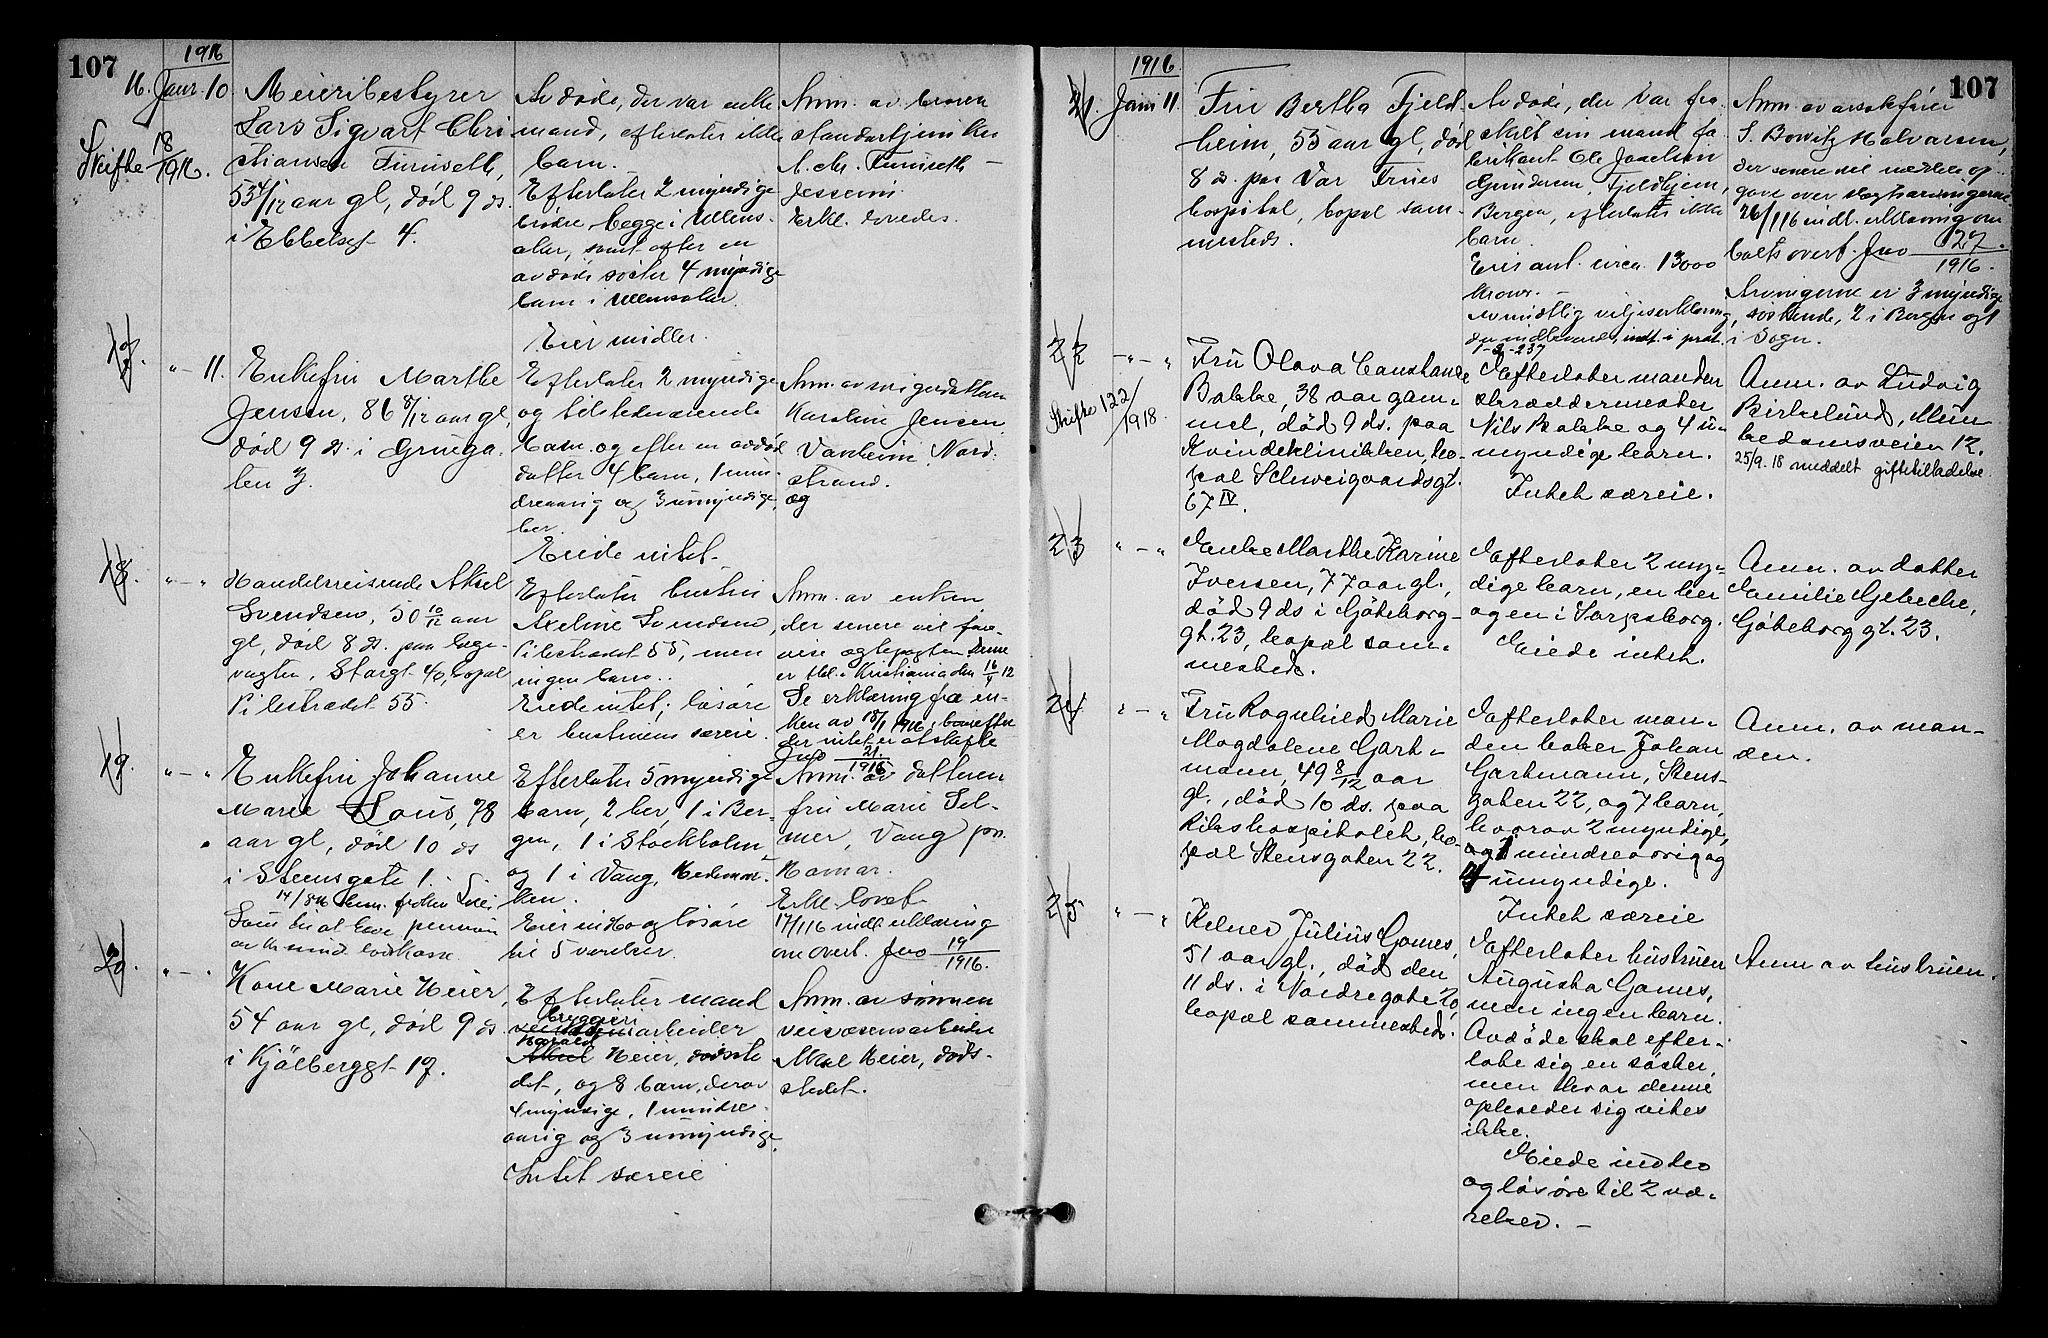 107
1916
16. Janr. 10
Skifte 18/1916.
Meieribestyrer
Lars Sigvart Chri
stiansen Furuseth,
53 4/12 aar gl, död 9 ds.
i Ebbelsgt 4.
Avdöde, der var enke
mand, efterlater ikke
barn.
Efterlater 2 myndige
brödre begge i Ullens-
aker, samt efter en
avdöd söster 4 myndige
barn i Ullensaker.
Eier midler.
Anm. av broren
standartjunker
A. Chr. Furuseth –
Jessheim.
Erkl. lovedes.
17. " – 11.
Enkefru Marthe
Jensen, 86 8/12 aar gl,
död 9 ds. i Grünga-
ten 3.
Efterlater 2 myndige
og tilstedeværende
barn og efter en avdöd
datter 4 barn, 1 min-
dreaarig og 3 umyndige,
her.
Eiede intet.
Anm. av svigerdatteren
Karoline Jensen,
Vanheim, Nord-
strand.
og
18. " – "
Handelsreisende Aksel
Svendsen, 50 10/12 aar
gl, död 8 ds. paa læge-
vagten, Storgt. 40, bopæl
Pilestrædet 55.
Efterlater hustru
Axeline Svendsen,
Pilestrædet 55, men
ingen barn.
Eiede intet; lösöre
er hustruens særeie.
Anm. av enken
der senere vil frem-
vise egtepagten. Denne
er tbl. i Kristiania den 16/1 12
Se erklæring fra en-
ken av 18/1 1916, hvorefter
der intet er at skifte
Jno 21./1916
19. " – "
Enkefru Johanne
Marie Sous, 78
aar gl, död 10 ds
i Stensgate 1.
av Kr. sind. lodskasse.
Efterlater 5 myndige
barn, 2 her, 1 i Ber-
gen, 1 i Stockholm
og 1 i Vang, Hedemar-
ken.
Eier indbo og lösöre
til 5 værelser.
Anm. av datteren
fru Marie Sel-
mer, Vang pr.
Hamar.
Erkl. lovet.
17/1 16 indl. erklæring
om overt. Jno 19/1916.
20. " – "
Kone Marie Heier,
54 aar gl, död 9 ds.
i Kjölberggt 17.
Efterlater mand
bryggeri
arbeider
Harald
Aksel Heier, dödste
det, og 8 barn, derav
4 myndige, 1 mindre-
aarig og 3 umyndige.
Intet særeie
Anm. av sönnen
veivæsensarbeider
Aksel Heier, döds-
stedet.
107
1916
21. Janr 11.
Fru Bertha Fjeld-
heim, 55 aar gl, död
8 ds. paa Vor Frues
hospital, bopæl sam-
mesteds.
Avdöde, der var fra-
skilt sin mand fa-
brikant Ole Joachim
Gundersen Fjeldhjem,
Bergen, efterlater ikke
barn.
Eier ant. circa 13000
kroner. –
Av mundtlig viljeserklæring,
der vedkommende, indt. i prot.
7-2-237
Anm. av orsakförer
S. Bowitz Halvorsen,
der senere vil meddele op-
gave over slegtsarvingerne
26/1 16 indl. erklæring om
boets overt. Jno 27./1916.
Arvingerne er 3 myndige
söskende, 2 i Bergen og 1
i Sogn.
22 – " – "
Skifte 122/1918.
Fru Olava Constance
Bakke, 38 aar gam-
mel, död 9 ds. paa
Kvindeklinikken, bo-
pæl Schweigaardsgt.
67 IV.
Efterlater manden
skræddermester
Nils Bakke og 4 u-
myndige barn.
Intet særeie.
Anm. av Ludvig
Birkelund, Mun-
kedamsveien 12.
25/9. 18 meddelt giftetilladelse.
23 " – "
Enke Marthe Karine
Iversen, 77 aar gl.,
död 9 ds i Göteborg-
gt. 23, bopæl sam-
mesteds.
Efterlater 2 myn-
dige barn, en her
og en i Sarpsborg.
Eiede intet.
Anm. av datter
Emilie Gebecke,
Göteborggt. 23.
24 " – "
Fru Ragnhild Marie
Magdalene Gart-
mann, 49 8/12 aar
gl., död 10 ds. paa
Rikshospitalet, bo-
pæl Stensgaten 22.
Efterlater man-
den baker Johan
Gartmann, Stens-
gaten 22, og 7 barn,
hvorav 2 myndige,
og 1 mindreaarig og
4 umyndige.
Intet særeie
Anm. av man-
den.
25 " – "
Kelner Julius Games,
51 aar gl., död den
11 ds. i Nordregate 20,
bopæl sammesteds.
Efterlater hustruen
Augusta Games,
men ingen barn.
Avdöde skal efter-
late sig en söster,
men hvor denne
opholder sig vites
ikke.
Eiede indbo
og lösöre til 2 væ-
relser. –
Anm av hustruen.